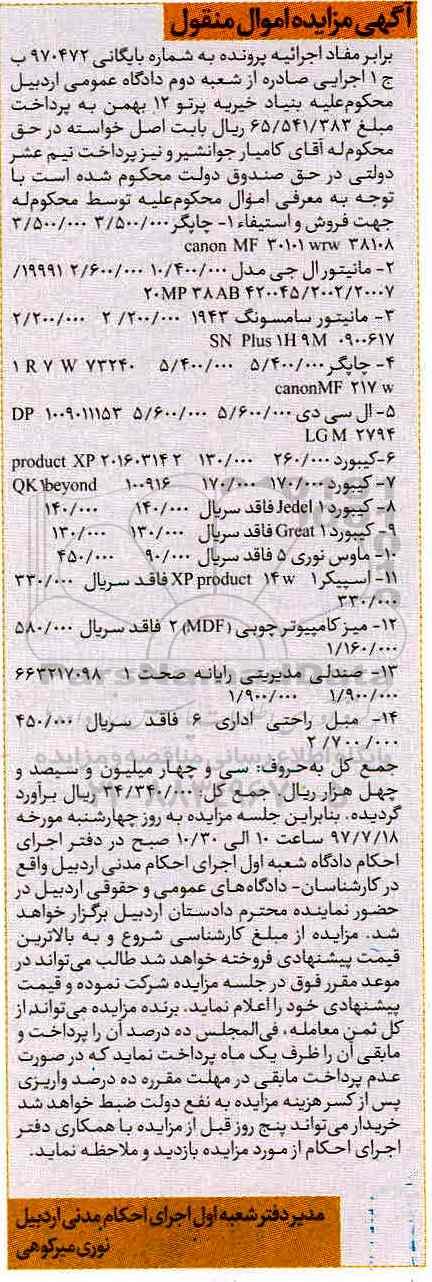 آگهی مزایده اموال منقول
برابر مفاد اجرائیه پرونده به شماره بایگانی ۹۷۰۴۷۲ ب
ج ۱ اجرایی صادره از شعبه دوم دادگاه عمومی اردبیل
محکوم‌علیه بنیاد خیریه پرتو ۱۲ بهمن به پرداخت
مبلغ ۶۵/۵۴۱/۳۸۳ ریال بابت اصل خواسته در حق
محکوم‌له آقای کامیار جوانشیر و نیز پرداخت نیم عشر
دولتی در حق صندوق دولت محکوم شده است با
توجه به معرفی اموال محکوم‌علیه توسط محکوم‌له
جهت فروش و استیفاء ۱- چاپگر ۳/۵۰۰/۰۰۰ ۳/۵۰۰/۰۰۰
canon MF ۳۰۱۰۱ wrw ۳۸۱۰۸
۲- مانیتور ال جی مدل ۱۰/۴۰۰/۰۰۰ ۲/۶۰۰/۰۰۰ ۱۹۹۹۱/
۲۰MP ۳۸AB ۴۲۰۰۴۵/۲۰۰۲/۲۰۰۰۷
۳- مانیتور سامسونگ ۱۹۴۳ ۲/۲۰۰/۰۰۰ ۲/۲۰۰/۰۰۰
SN Plus ۱H ۹M ۰۹۰۰۶۱۷
۴- چاپگر ۵/۴۰۰/۰۰۰ ۵/۴۰۰/۰۰۰ ۱ R ۷ W ۷۳۲۴۰
canonMF ۲۱۷ w
۵- ال سی دی ۵/۶۰۰/۰۰۰ ۵/۶۰۰/۰۰۰ DP ۱۰۰۹۰۱۱۱۵۳
LG M ۲۷۹۴
۶-کیبورد ۲۶۰/۰۰۰ ۱۳۰/۰۰۰ product XP ۲۰۱۶۰۳۱۴ ۲
۷- کیبورد ۱۷۰/۰۰۰ ۱۷۰/۰۰۰ ۱۰۰۹۱۶ QK ۱beyond
۸- کیبورد ۱ Jedel فاقد سریال ۱۴۰/۰۰۰ ۱۴۰/۰۰۰
۹- کیبورد ۱ Great فاقد سریال ۱۳۰/۰۰۰ ۱۳۰/۰۰۰
۱۰- ماوس نوری ۵ فاقد سریال ۹۰/۰۰۰ ۴۵۰/۰۰۰
۱۱- اسپیکر ۱ XP product ۱۴ w فاقد سریال ۳۳۰/۰۰۰
۳۳۰/۰۰۰
۱۲- میز کامپیوتر چوبی (MDF) ۲ فاقد سریال ۵۸۰/۰۰۰
۱/۱۶۰/۰۰۰
۱۳- صندلی مدیریتی رایانه صحت ۱ ۶۶۳۲۱۷۰۹۸
۱/۹۰۰/۰۰۰ ۱/۹۰۰/۰۰۰
۱۴- مبل راحتی اداری ۶ فاقد سریال ۴۵۰/۰۰۰
۲/۷۰۰/۰۰۰
جمع کل به‌حروف: سی و چهار میلیون و سیصد و
چهل هزار ریال، جمع کل: ۳۴/۳۴۰/۰۰۰ ریال برآورد
گردیده. بنابراین جلسه مزایده به روز چهارشنبه مورخه
۹۷/۷/۱۸ ساعت ۱۰ الی ۱۰/۳۰ صبح در دفتر اجرای
احکام دادگاه شعبه اول اجرای احکام مدنی اردبیل واقع
در کارشناسان- دادگاه‌های عمومی و حقوقی اردبیل در
حضور نماینده محترم دادستان اردبیل برگزار خواهد
شد. مزایده از مبلغ کارشناسی شروع و به بالاترین
قیمت پیشنهادی فروخته خواهد شد طالب می‌تواند در
موعد مقرر فوق در جلسه مزایده شرکت نموده و قیمت
پیشنهادی خود را اعلام نماید. برنده مزایده می‌تواند از
کل ثمن معامله، فی‌المجلس ده درصد آن را پرداخت و
مابقی آن را ظرف یک ماه پرداخت نماید که در صورت
عدم پرداخت مابقی در مهلت مقرره ده درصد واریزی
پس از کسر هزینه مزایده به نفع دولت ضبط خواهد شد
خریدار می‌تواند پنج روز قبل از مزایده با همکاری دفتر
اجرای احکام از مورد مزایده بازدید و ملاحظه نماید.
مدیر دفتر شعبه اول اجرای احکام مدنی اردبیل
نوری میرکوهی